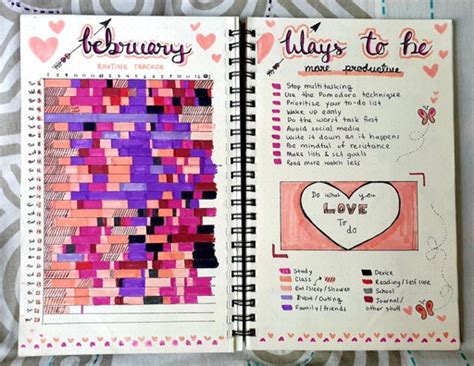 February
ROUTINE TRACKER
Ways to be
more productive
Stop multitasking
Use the Pomodoro technique
Prioritize your to-do list
Wake up early
Do the worst task first
Avoid social media
Write it down as it happens
Be mindful of resistance
Make lists & set goals
Read more watch less
Do what you
LOVE
To do
Study
Class
Eat/Sleep/Shower
Event/Outing
Family/friends
Device
Reading/Self care
School
Journal/
other stuff